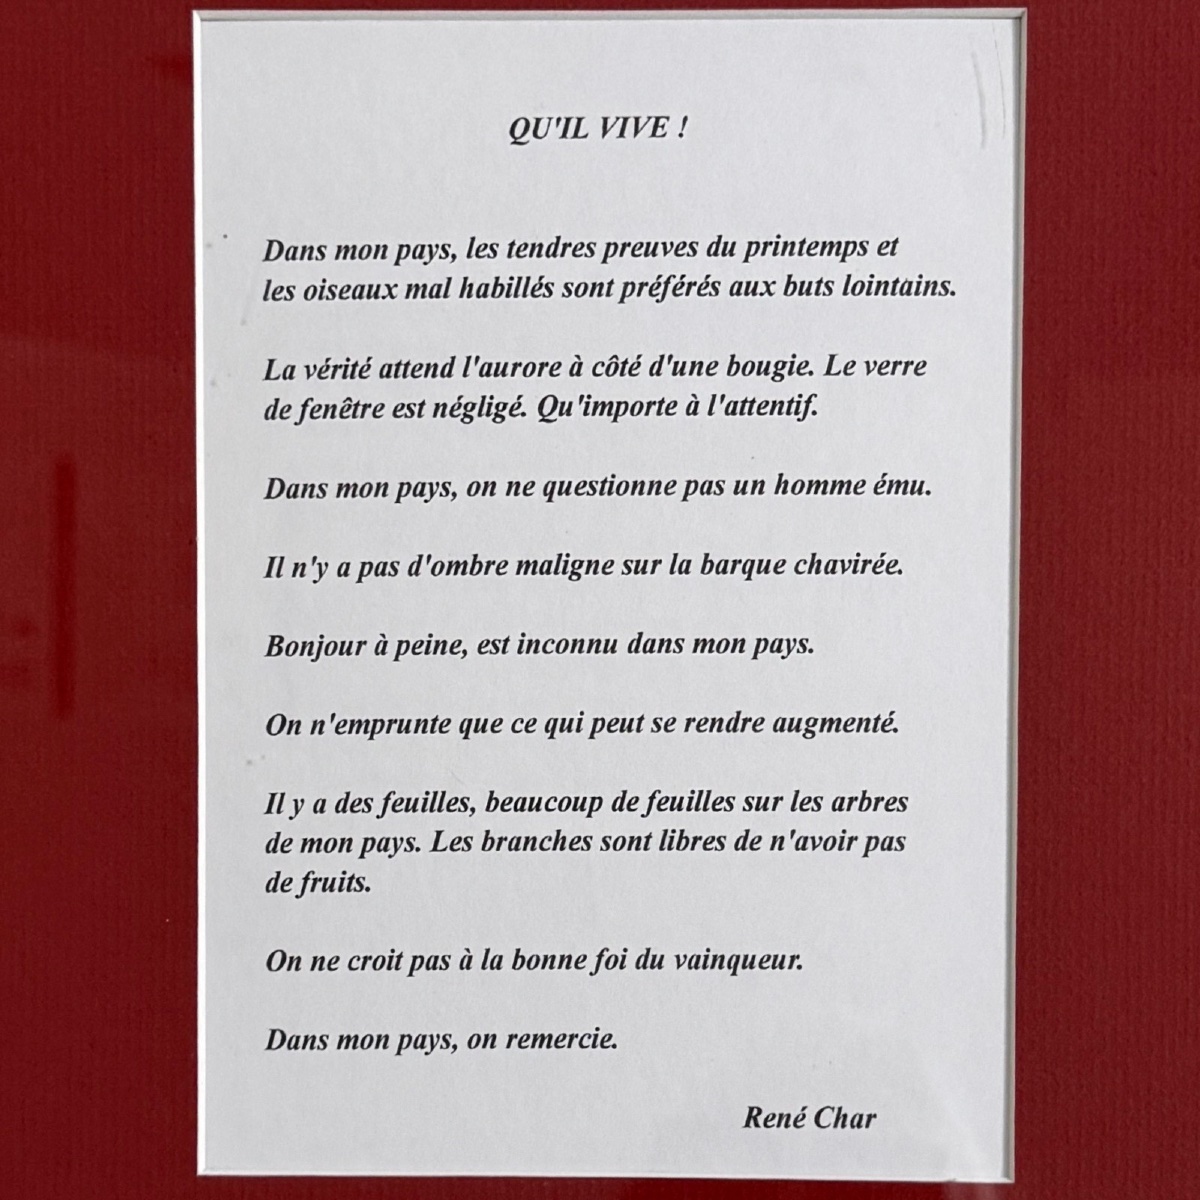 QU'IL VIVE !
Dans mon pays, les tendres preuves du printemps et
les oiseaux mal habillés sont préférés aux buts lointains.
La vérité attend l'aurore à côté d'une bougie. Le verre
de fenêtre est négligé. Qu'importe à l'attentif.
Dans mon pays, on ne questionne pas un homme ému.
Il n'y a pas d'ombre maligne sur la barque chavirée.
Bonjour à peine, est inconnu dans mon pays.
On n'emprunte que ce qui peut se rendre augmenté.
Il y a des feuilles, beaucoup de feuilles sur les arbres
de mon pays. Les branches sont libres de n'avoir pas
de fruits.
On ne croit pas à la bonne foi du vainqueur.
Dans mon pays, on remercie.
René Char